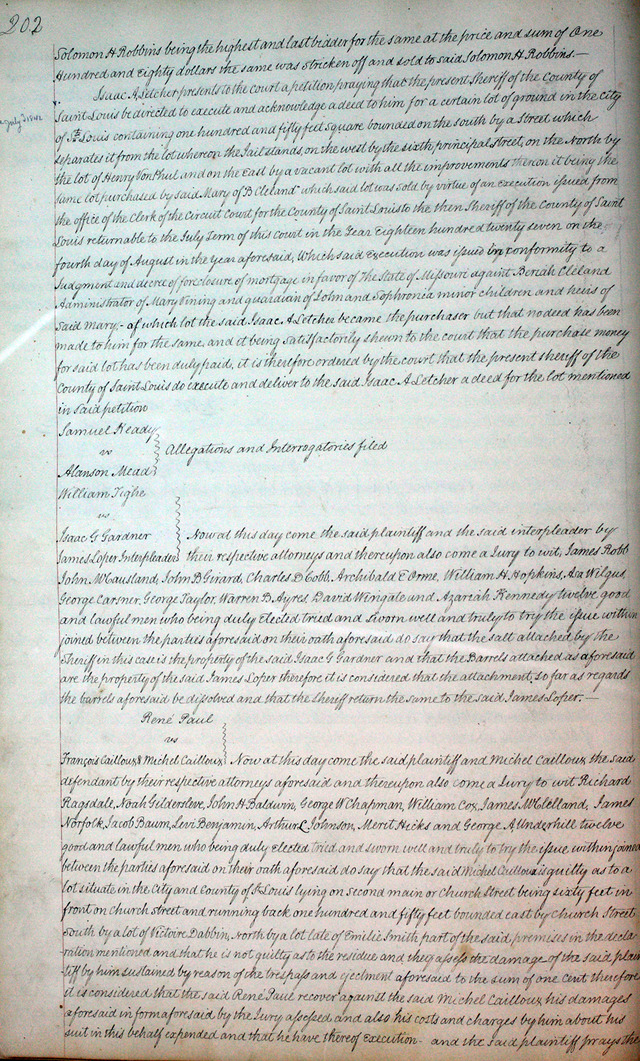 202
Solomon H Robbins being the highest and last bidder for the same at the price and sum of One
Hundred and Eighty dollars the same was stricken off and sold to said Solomon H. Robbins.—
Isaac A Letcher presents to the court a petition praying that the present Sheriff of the County of
Saint Louis be directed to execute and acknowledge a deed to him for a certain lot of ground in the City
of St. Louis containing one hundred and fifty feet square bounded on the south by a Street which
separates it from the lot whereon the Jail stands, on the west by the sixth principal street, on the North by
the lot of Henry VonPhul and on the East by a vacant lot with all the improvements thereon it being the
same lot purchased by said Mary of B Cleland which said lot was sold by virtue of an execution issued from
the office of the Clerk of the Circuit Court for the County of Saint Louis to the then Sheriff of the County of Saint
Louis returnable to the July Term of this Court in the Year Eighteen hundred twenty seven on the
fourth day of August in the year aforesaid, Which said Execution was issued in conformity to a
Judgment and decree of foreclosure of mortgage in favor of The State of Missouri against Beriah Cleland
Administrator of Mary Vining and guardian of John and Sophronia minor children and heirs of
said Mary,- of which lot the said Isaac A Letcher became the purchaser but that no deed has been
made to him for the same, and it being satisfactorily shewn to the court that the purchase money
for said lot has been duly paid, it is therefore ordered by the court that the present sheriff of the
County of Saint Louis do execute and deliver to the said Isaac A Letcher a deed for the lot mentioned
in said petition
Samuel Keady
vs
Allegations and Interrogatories filed
Alanson Mead
William Tighe
vs
Isaac G Gardner
Now at this day come the said plaintiff and the said interpleader by
James Loper Interpleader
their respective attorneys and thereupon also come a Jury to wit, James Robb
John McCausland, John B Girard, Charles D Cobb, Archibald E Orme, William H. Hopkins, Asa Wilgus,
George Carsner, George Taylor, Warren B. Ayres, David Wingale and Azariah Kennedy twelve good
and lawful men who being duly Elected tried and sworn well and truly to try the issue within
joined between the parties aforesaid on their oath aforesaid do say that the salt attached by the
Sheriff in this case is the property of the said Isaac G Gardner and that the Barrels attached as aforesaid
are the property of the said James Loper therefore it is considered that the attachment, so far as regards
the barrels aforesaid be dissolved and that the Sheriff return the same to the said James Loper.—
René Paul
vs
François Cailloux & Michel Cailloux
Now at this day come the said plaintiff and Michel Cailloux the said
defendant by their respective attorneys aforesaid and thereupon also come a Jury to wit Richard
Ragsdale, Noah Gildersleve, John H Baldwin, George W Chapman, William Cox, James McClelland, James
Norfolk, Jacob Baum, Levi Benjamin, Arthur L Johnson, Merit Hicks and George A Underhill twelve
good and lawful men who being duly elected tried, and sworn well and truly to try the issue within joined
between the parties aforesaid on their oath aforesaid do say that the said Michel Cailloux is guilty as to a
lot situate in the City and County of St Louis lying on Second main or Church Street being sixty feet in
front on Church Street and running back one hundred and fifty feet bounded east by Church Street
South by a lot of Victoire Dabbin, North by a lot late of Emilie Smith part of the said premises in the decla
ration mentioned and that he is not guilty as to the residue and they assess the damage of the said plain
tiff by him sustained by reason of the trespass and ejectment aforesaid to the sum of one cent therefore
it is considered that the said René Paul recover against the said Michel Cailloux his damages
aforesaid in form aforesaid by the Jury assessed and also his costs and charges by him about his
suit in this behalf expended and that he have thereof Execution - and the said plaintiff prays the